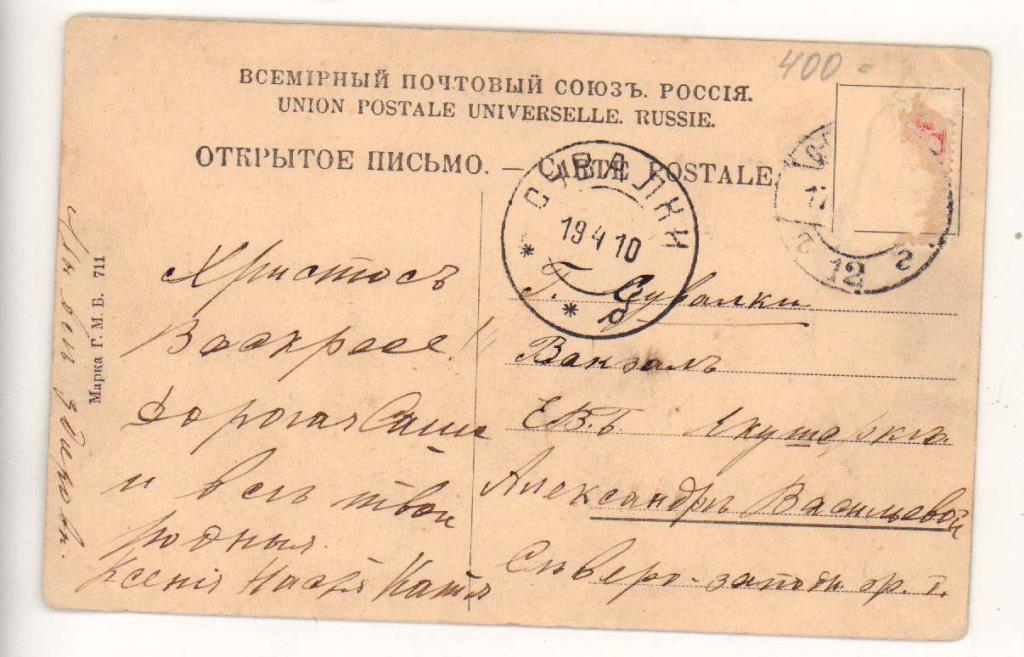 400 =
ВСЕМІРНЫЙ ПОЧТОВЫЙ СОЮЗЪ. РОССІЯ.
UNION POSTALE UNIVERSELLE. RUSSIE.
ОТКРЫТОЕ ПИСЬМО. — CARTE POSTALE.
СУВАЛКИ
19 4 10
* * б
12 г
Марка Г. М. Б. 711
Христосъ
Воскресе!!
Дорогая Саша
и всѣ твои
родныя.
Ксенія Настя Катя
Г. Сувалки
Вокзалъ
ЕВ.Б. Акушеркѣ
Александрѣ Васильевой
Сѣверо-запад. ж. д.